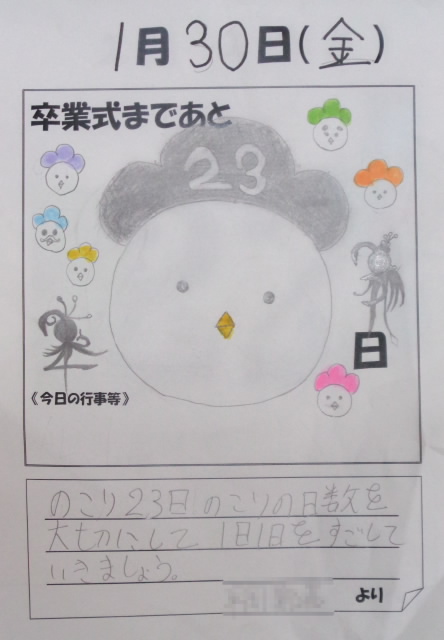 1月30日(金)
卒業式まであと
23
日
《今日の行事等》
のこり23日 のこりの日数を
大切にして 1日1日をすごして
いきましょう。
より